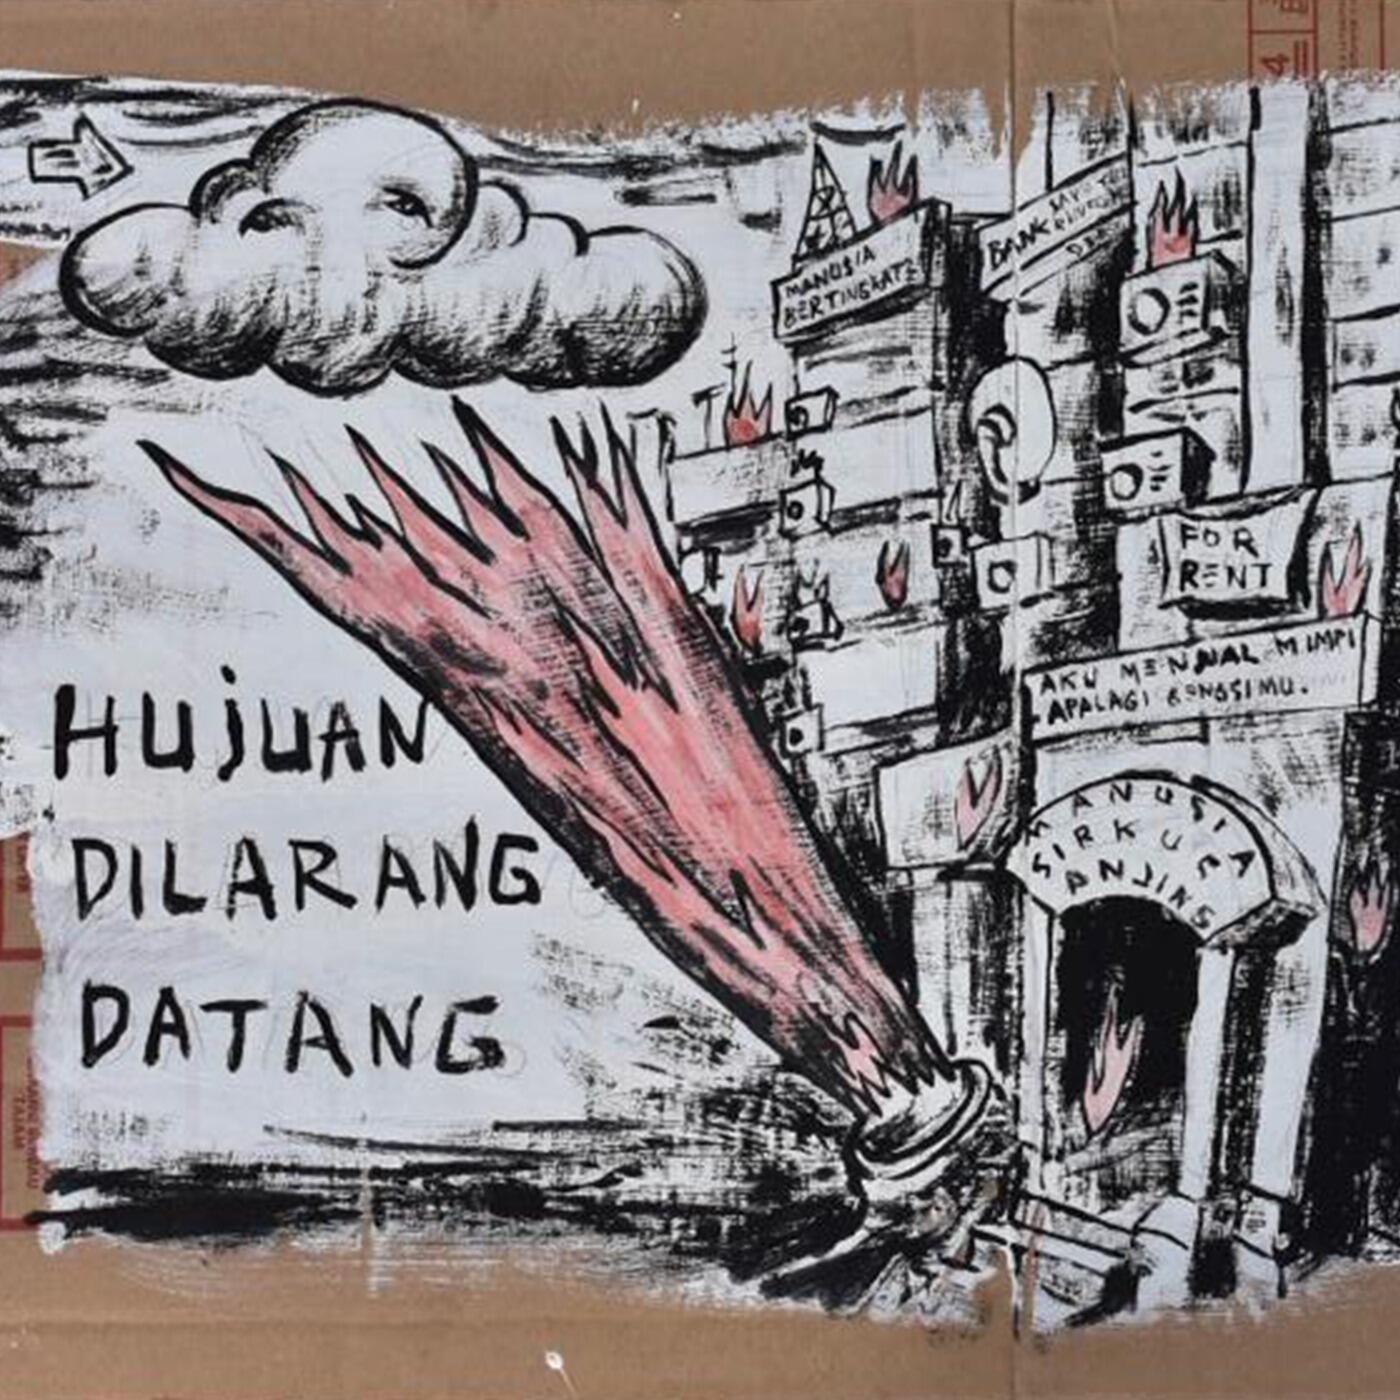 HUJUAN
DILARANG
DATANG
MANUSIA
BERTINGKAT2
BANK
FOR
RENT
AKU MENJUAL MIMPI
APALAGI GENGSIMU.
MANUSIA
SIRKUS
ANJING
4